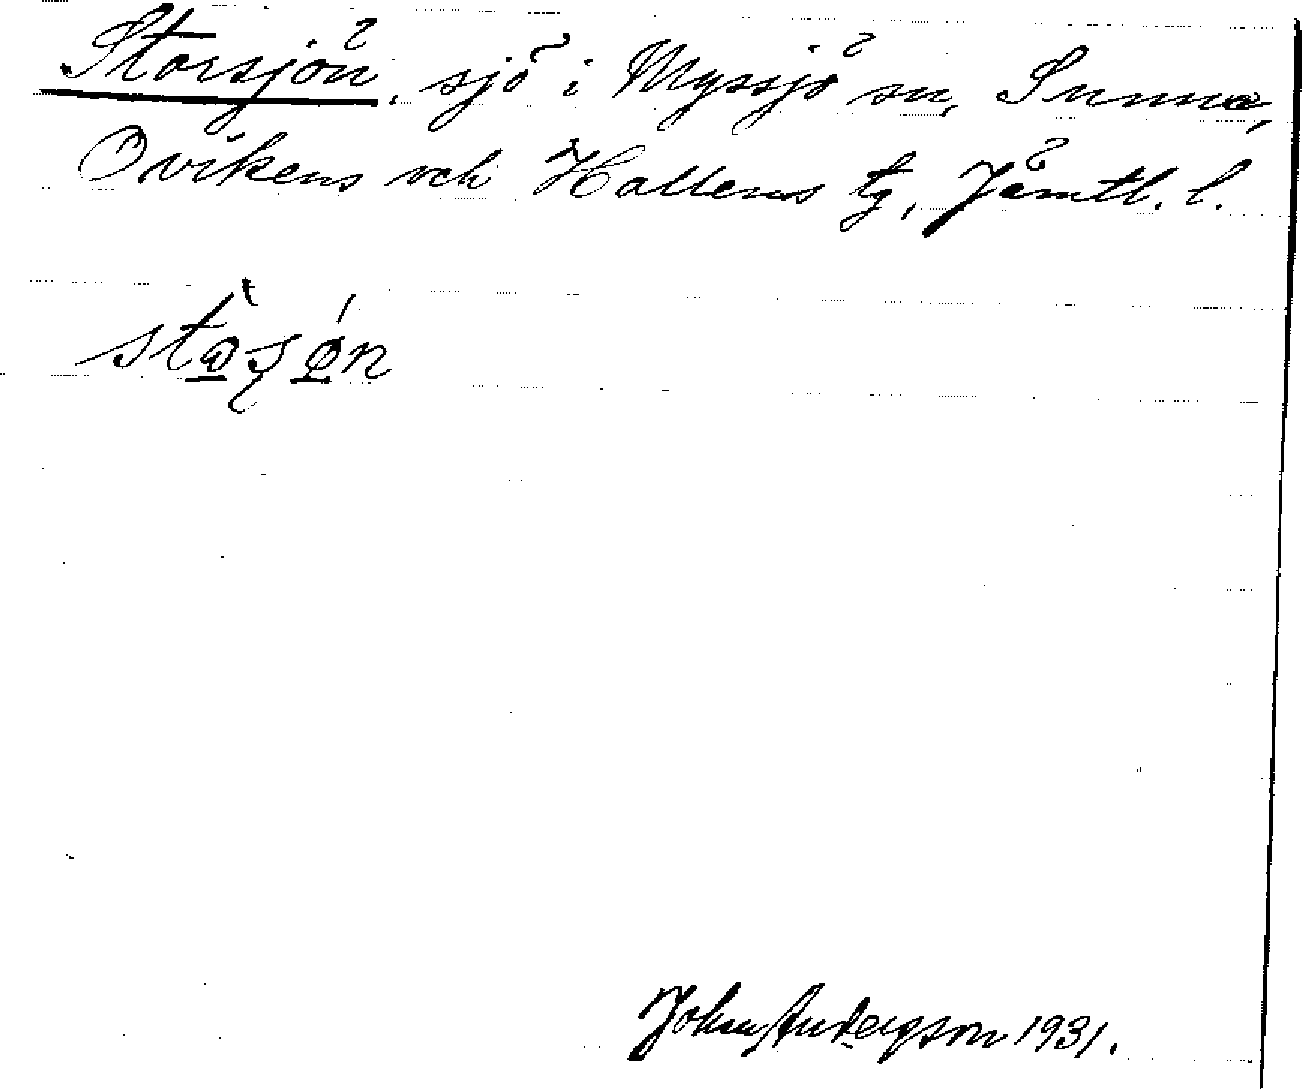 Storsjön, sjö i Myssjö sn, Sunne,
Ovikens och Hallens tg, Jämtl. l.
John Andersson 1931.